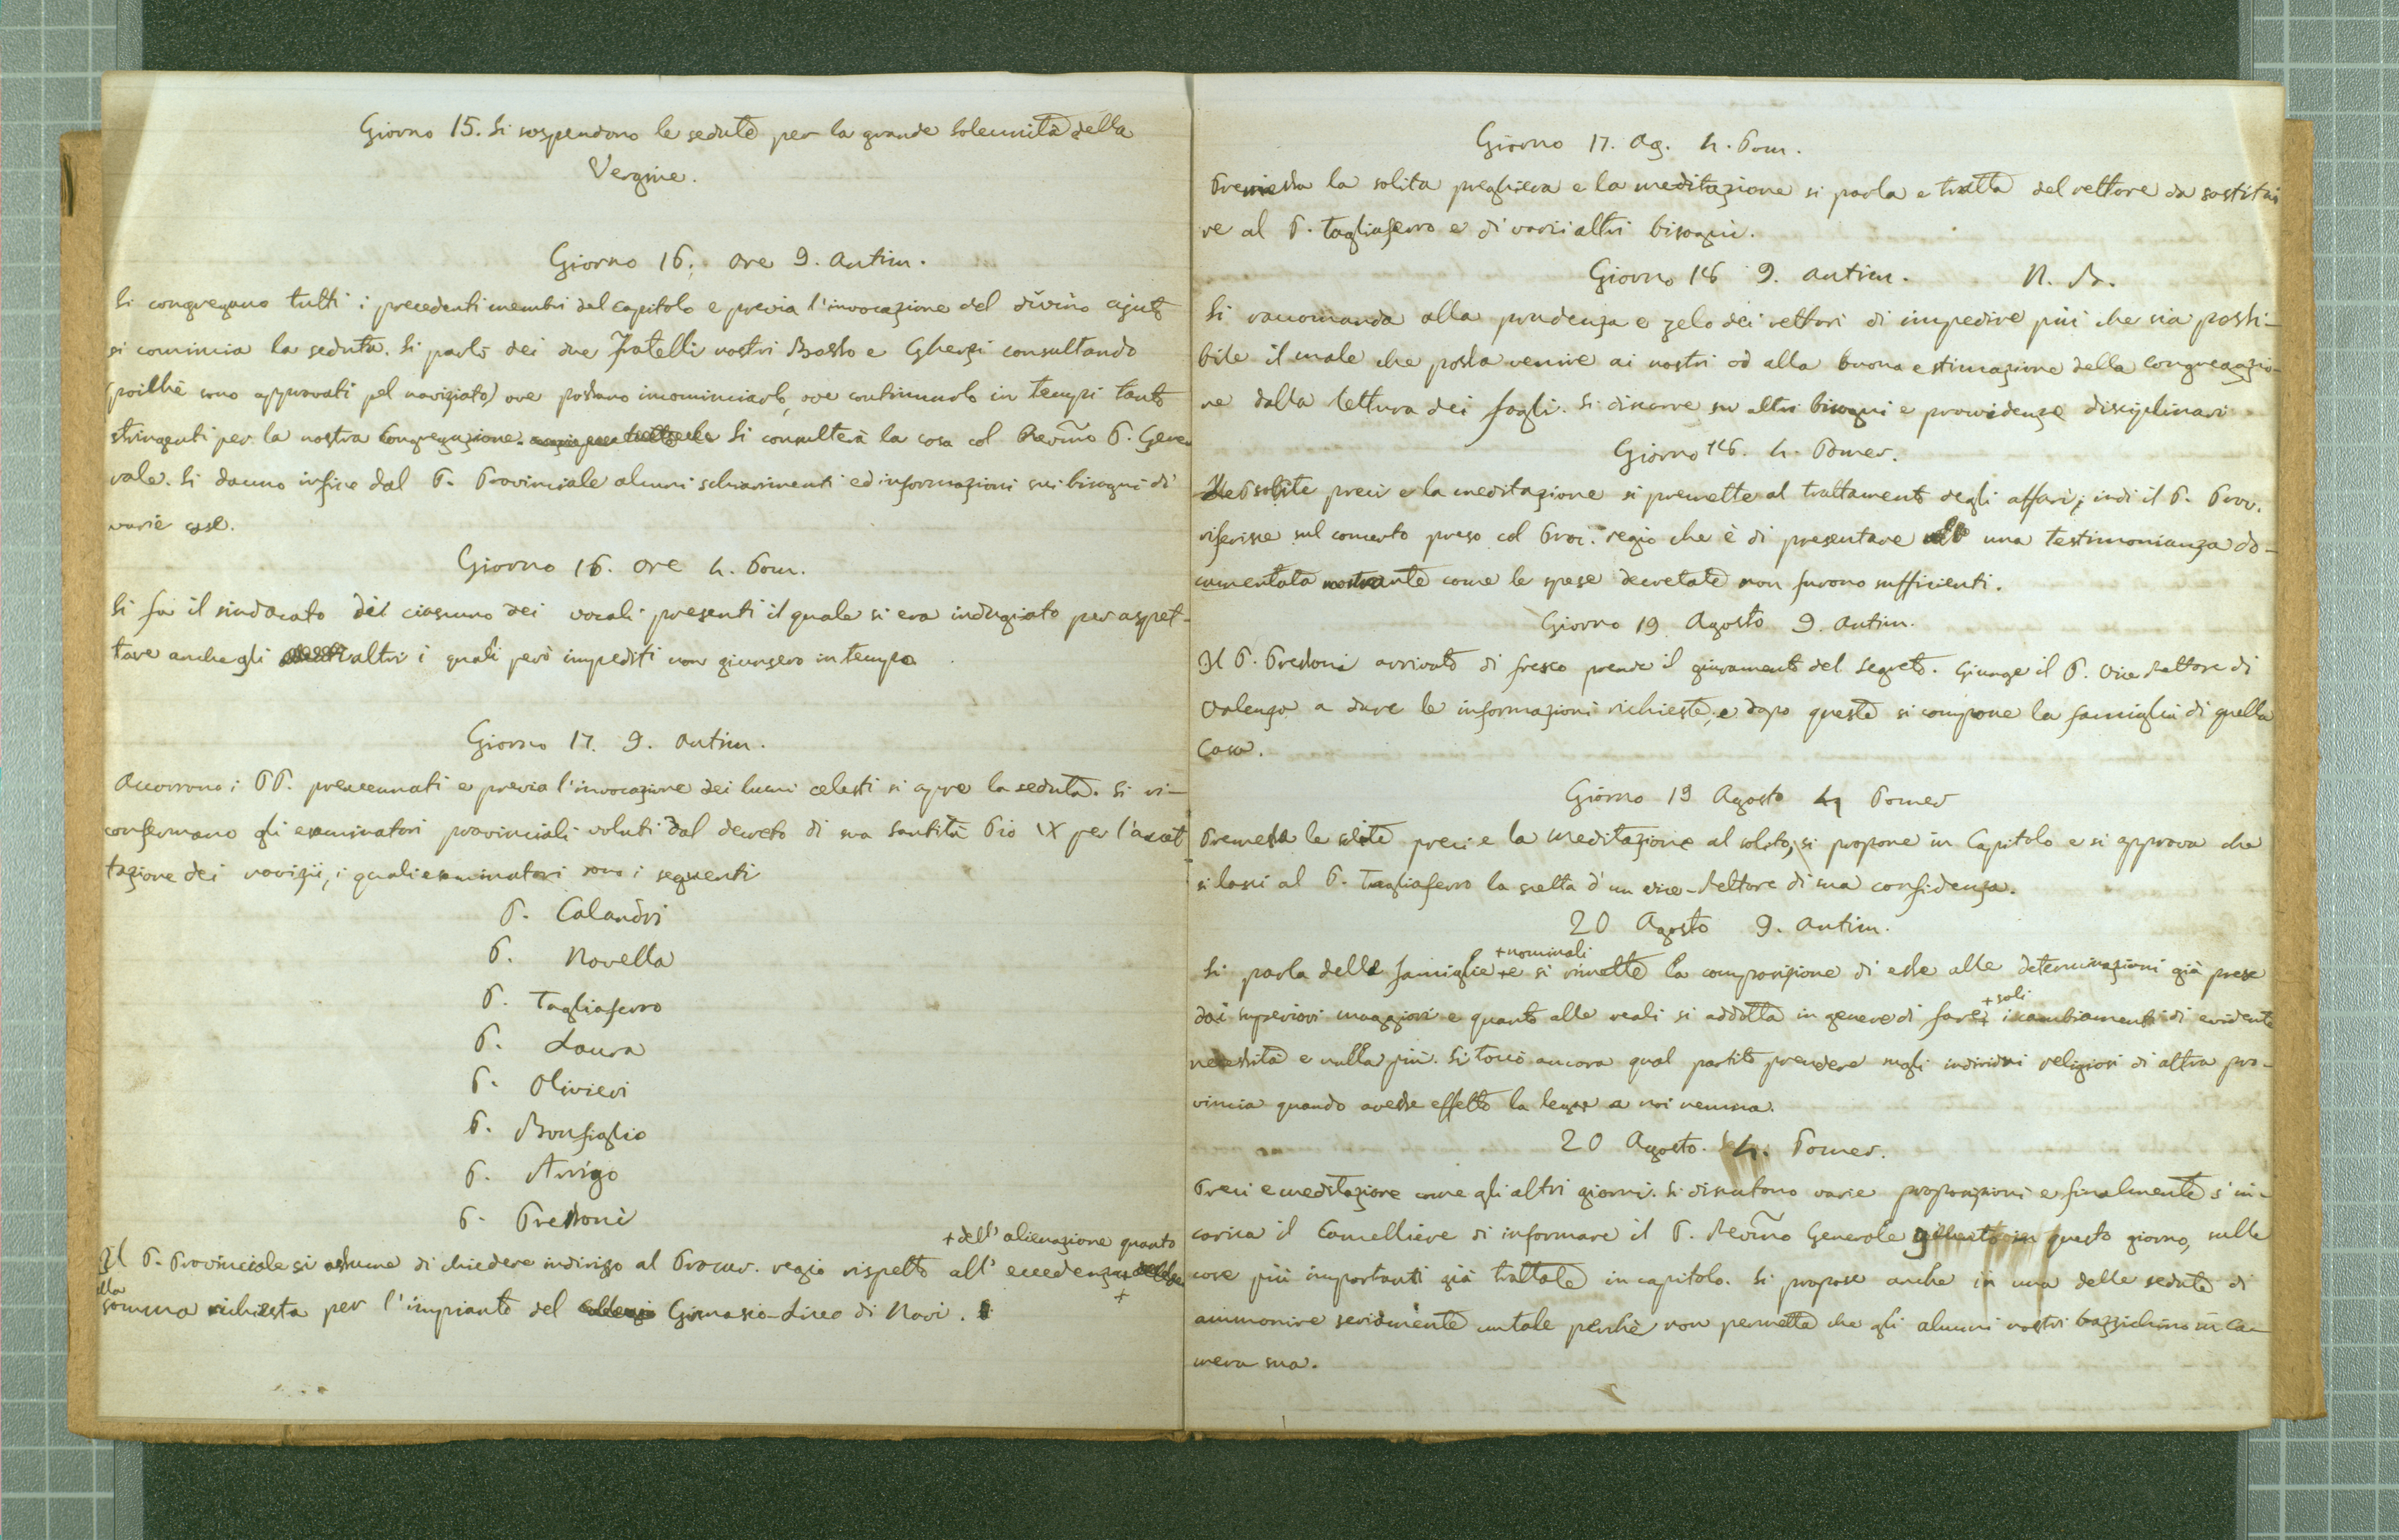 Giorno 15. Si sospendono le sedute per la grande Solennità della
Vergine.
Giorno 16. ore 9. antim.
Si congregano tutti i precedenti membri del capitolo e previa l'invocazione del divino ajuto
si comincia la seduta. Si parlò dei due Fratelli nostri Basso e Gherzi consultando
(poichè sono approvati pel noviziato) ove possano incominciarlo, ove continuarlo in tempi tanto
stringenti per la nostra Congregazione. Si consulterà la cosa col Revmo P. Gene
rale. Si danno infine dal P. Provinciale alcuni schiarimenti ed informazioni sui bisogni di
varie case.
Giorno 16. ore 4. Pom.
Si fa il sindacato di ciascuno dei vocali presenti il quale si era indugiato per aspet-
tare anche gli altri i quali però impediti non giunsero in tempo
Giorno 17. 9. antim.
Accorrono i PP. preaccennati e previa l'invocazione dei lumi celesti si apre la seduta. Si ri-
confermano gli esaminatori provinciali voluti dal decreto di sua Santità Pio IX per l'accet
tazione dei novizii, i quali esaminatori sono i seguenti
P. Calandri
P. Novella
P. Tagliaferro
P. Laura
P. Olivieri
P. Bonfiglio
P. Arrigo
P. Pressoni
+ dell' alienazione quanto
Il P. Provinciale si assume di chiedere indirizzo al Procur. regio rispetto all' eccedenza +
alla
somma richiesta per l'impianto del Ginnasio-Liceo di Novi.
Giorno 17. Ag. 4. Pom.
Premessa la solita preghiera e la meditazione si parla e tratta del rettore da sostitui
re al P. Tagliaferro e di varii altri bisogni.
Giorno 18 9. antim. N. B.
Si raccomanda alla prudenza e zelo dei rettori di impedire più che sia possi-
bile il male che possa venire ai nostri od alla buona estimazione della congregazio-
ne dalla lettura dei fogli. Si discorre su altri bisogni e provvidenze disciplinari
Giorno 18. 4. Pomer.
Le solite preci e la meditazione si premette al trattamento degli affari; indi il P. Prov.
riferisce sul concerto preso col Proc. regio che è di presentare una testimonianza do-
cumentata mostrante come le spese decretate non furono sufficienti.
Giorno 19 Agosto 9. antim.
Il P. Pressoni arrivato di fresco prende il giuramento del segreto. Giunge il P. Vice Rettore di
Valenza a dare le informazioni richieste, e dopo queste si compone la famiglia di quella
Casa.
Giorno 19 Agosto 4 Pomer
Premessa le solite preci e la meditazione al solito, si propone in Capitolo e si approva che
si lasci al P. Tagliaferro la scelta d'un vice-Rettore di sua confidenza.
20 Agosto 9. antim.
+ nominali
Si parla delle famiglie + e si rimette la composizione di esse alle determinazioni già prese
+ soli
dai superiori maggiori e quanto alle reali si addotta in genere di fare + i cambiamenti di evidente
necessità e nulla più. Si toccò ancora qual partito prendere sugli individui religiosi di altra pro-
vincia quando avesse effetto la legge a noi nemica.
20 Agosto. 4. Pomer.
Preci e meditazione come gli altri giorni. Si discutono varie proposizioni e finalmente s'in-
carica il Cancelliere di informare il P. Revmo Generale questo giorno, sulle
cose più importanti già trattate in capitolo. Si propose anche in una delle sedute di
ammonire seriamente un tale perchè non permetta che gli alunni nostri bazzichino in ca-
mera sua.